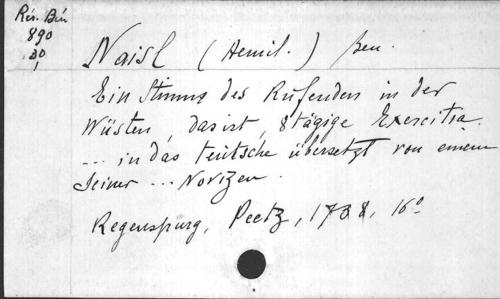 Rés. Bin
890
30,
Naisl (Aemil.) ben.
Ein Stimme des Rufenden in der
Wüsten, das ist, 8tägige Exercitia
... in das teutsche übersetzt von einem
Seiner ... Novizen.
Regenspurg, Peetz, 1738, 16°